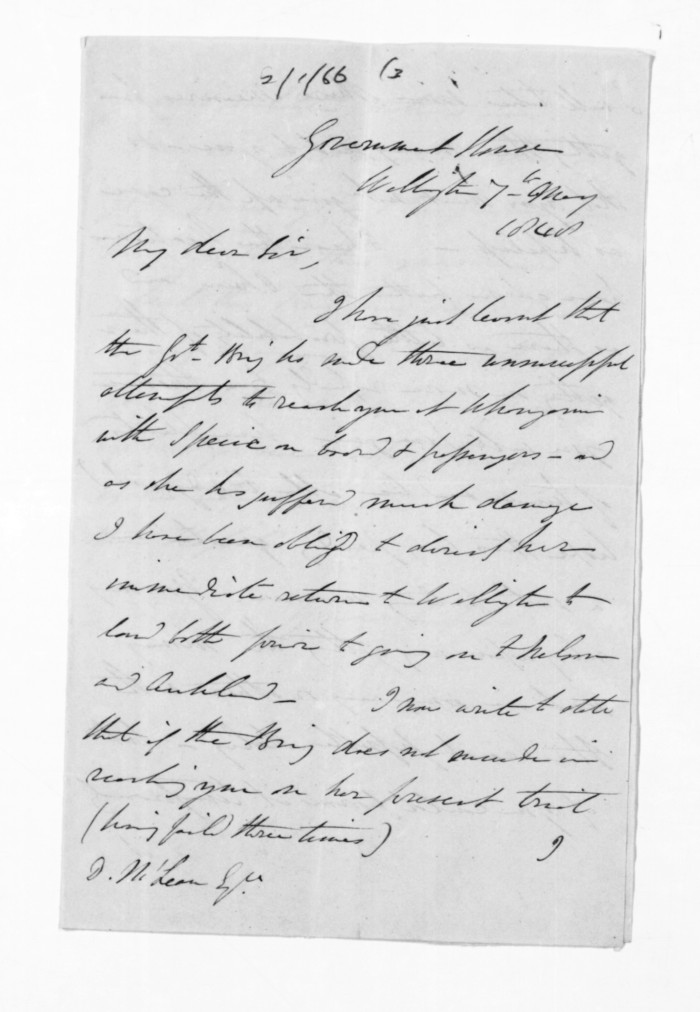 2/1/66 (3
Government House
Wellington 7th May
1848
My dear Sir,
I have just learnt that
the Govt. Brig has made three unsuccessful
attempts to reach you at Whanganui
with Specie on board & passengers - and
as she has suffered much damage
I have been obliged to direct her
immediate return to Wellington to
land both prior to going on to Nelson
and Auckland - I now write to state
that if the Brig does not succeed in
reaching you on her present trial
(having failed three times) I
D. McLean Esqre